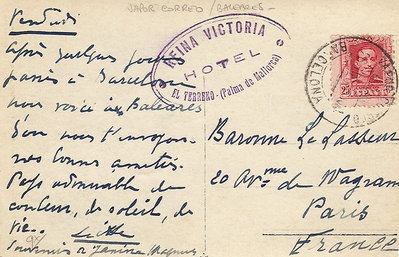 VAPOR CORREO / BALEARES -
Vendredi
Après quelques jours
passés à Barcelone
nous voici aux Baleares
D'où nous t'envoyons
nos bonnes amitiés.
Pays admirable de
couleur, de soleil, de
vie.
Souvenirs à
REINA VICTORIA
HOTEL
EL TERRENO - (Palma de Mallorca)
BARCELONA
25
ESPAÑA
Baronne Le Vasseur
20 Avenue de Wagram
Paris
France